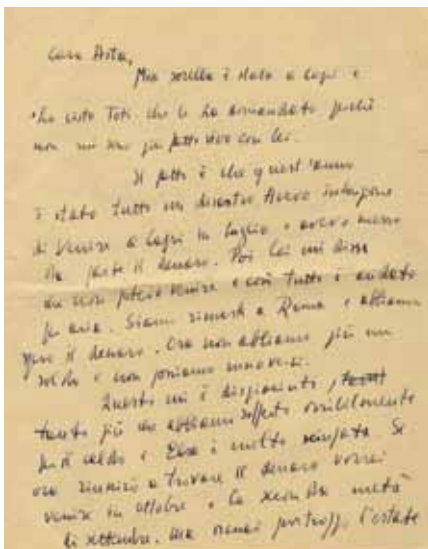 Cara Asta,
Mia sorella è stata a Capri e
ha visto Toti che le ha domandato perché
non mi sono più fatto vivo con lei.
Il fatto è che quest'anno
è stato tutto un disastro Avevo intenzione
di venire a Capri in luglio e avevo messo
da parte il denaro. Poi Lei mi disse
che non potevo venire e così tutto è andato
per aria. Siamo rimasti a Roma e abbiamo
il denaro. Ora non abbiamo più un
soldo e non possiamo muoverci.
Questo mi è dispiaciuto
tanto più che abbiamo sofferto orribilmente
per il caldo e Elsa è molto sciupata. Se
ora riuscirò a trovare il denaro vorrei
venire in ottobre o la seconda metà
di settembre. Ma ormai purtroppo l'estate